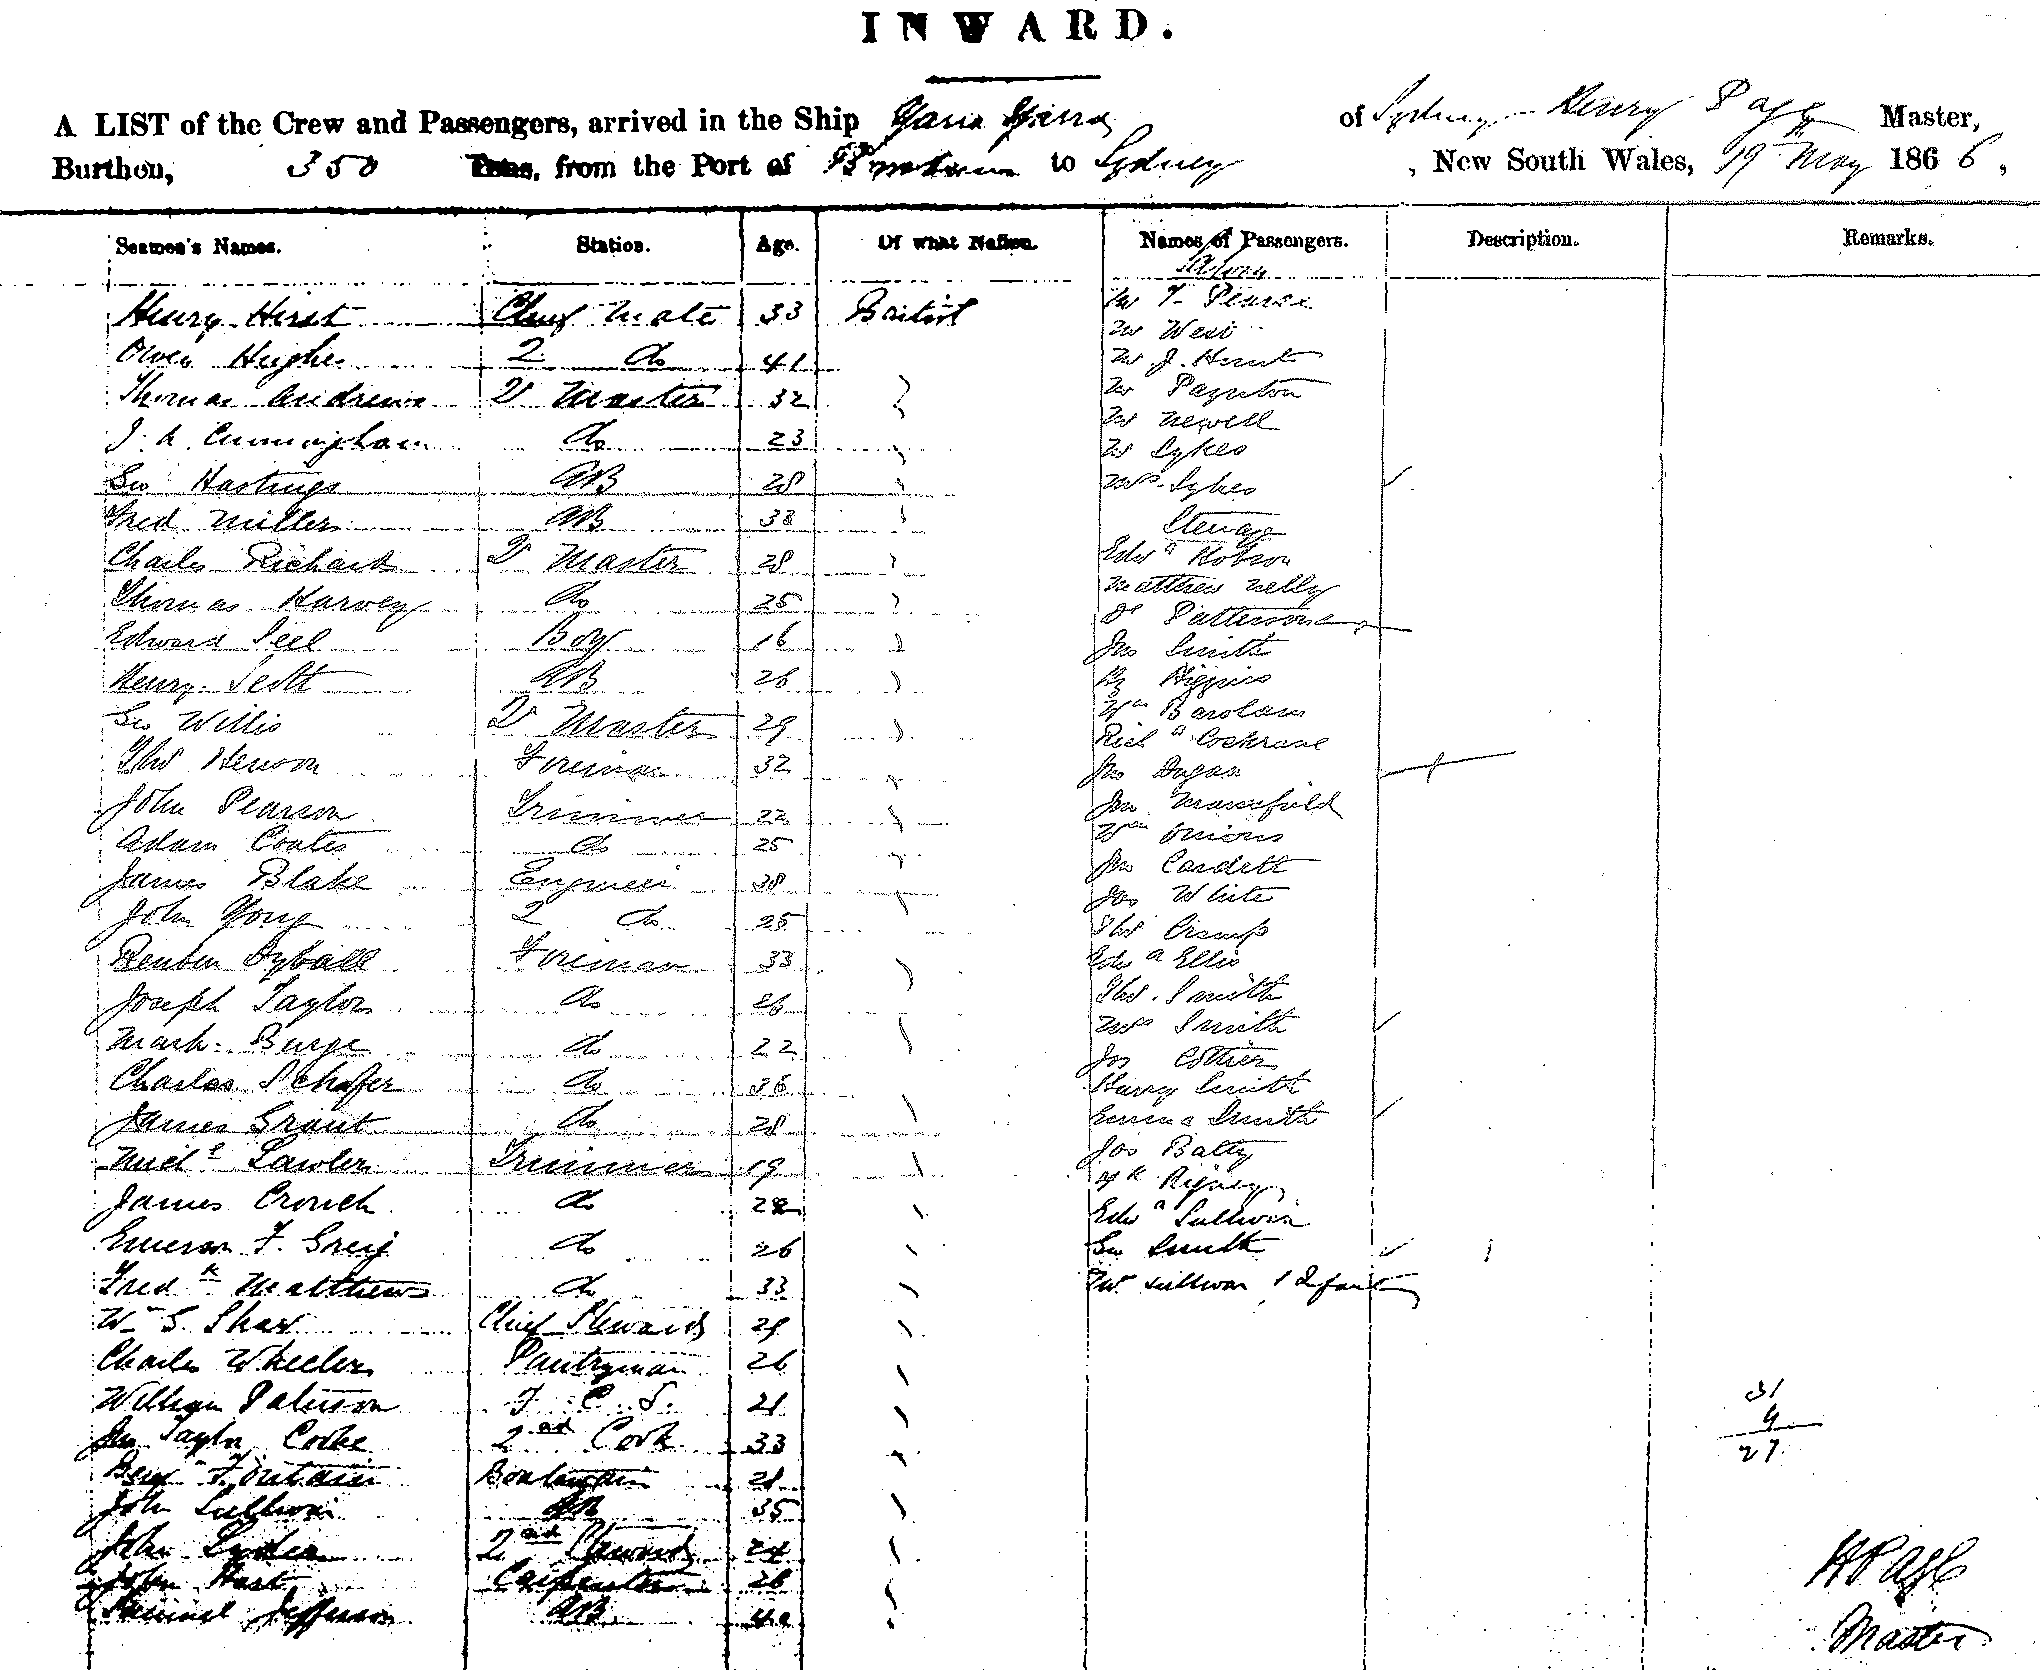 INWARD.
A LIST of the Crew and Passengers, arrived in the Ship Yarra Yarra of Sydney Henry Pagg Master,
Burthen, 350 Tons, from the Port of to Sydney, New South Wales, 19 May 1866,
Seamen's Names. Station. Age. Of what Nation. Names of Passengers. Description. Remarks.
Henry Hirst Chief Mate 33 British Mr T. Pearce
Mr West
Owen Hughes 2 do 41 Mr J. Hunt
Thomas Andrews Qr Master 32 Mr Paynton
Mr Newell
J. A. Cunningham do 23 Mr Sykes
Geo Hastings AB 28 Mrs Sykes
Fred Miller AB 38 Steerage
Charles Richards Qr Master 28 Edwd Hobson
Matthew Nelly
Thomas Harvey do 25 Pattersone
Edward Seel Boy 16 Jno Smith
Henry Scott AB 26 Hy Higgins
Wm
Geo Willis Qr Master 29 Richd Cochrane
Thos Foreman 32 Jno Dugan
John Pearson Trimmer 22 Jno Mansfield
Adam Coates do 25 Wm Onions
Jno Cardett
James Blake Engineer 38 Jas White
John Yong 2 do 25 Thos Crump
Reuben Dyball Foreman 33 Edwd Ellis
Joseph Taylor do 26 Thos. Smith
Mrs Smith
Mark Burge do 22 Jos Cottier
Charles Schafer do 36 Harry Smith
James Grant do 28 Emma Smith
Michl Lawler Trimmer 19 Jos Batty
Rigney
James Crouch do 28 Edwd Sullivan
Emerson F. Greig do 26 Geo Smith
Fredk Matthews do 33 Mrs Sullivan 1 Infant
Wm S. Shaw Chief Steward 29
Charles Wheeler Pantryman 26
William F. C. S. 21 31
Jno Taylor Cooke 2nd Cook 33 4
27
Benj Fontain Boatswain 28
John Sullivan AB 35
John 2nd Steward 24
John Hart Carpenter 28
Samuel Jefferson AB 40
H Pagg
Master